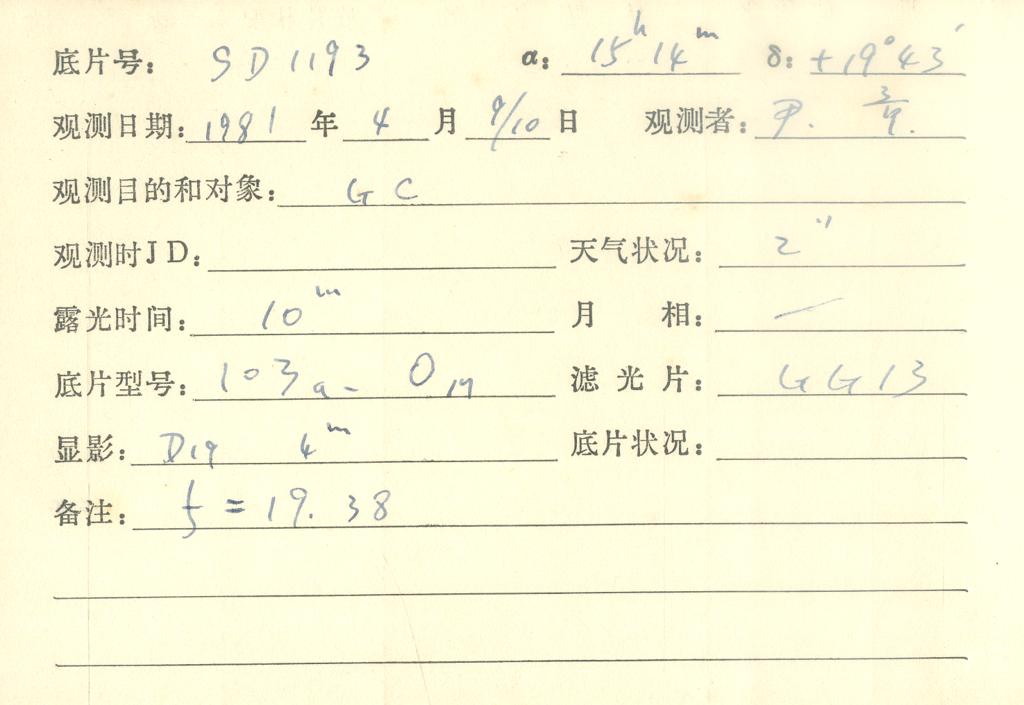 底片号: SD1193 α: 15h 14m δ: +19°43′
观测日期: 1981 年 4 月 9/10 日 观测者:
观测目的和对象: GC
观测时JD: 天气状况: 2″
露光时间: 10m 月 相: —
底片型号: 103a-O 滤光片: GG13
显影: D19 4m 底片状况:
备注: f = 19.38